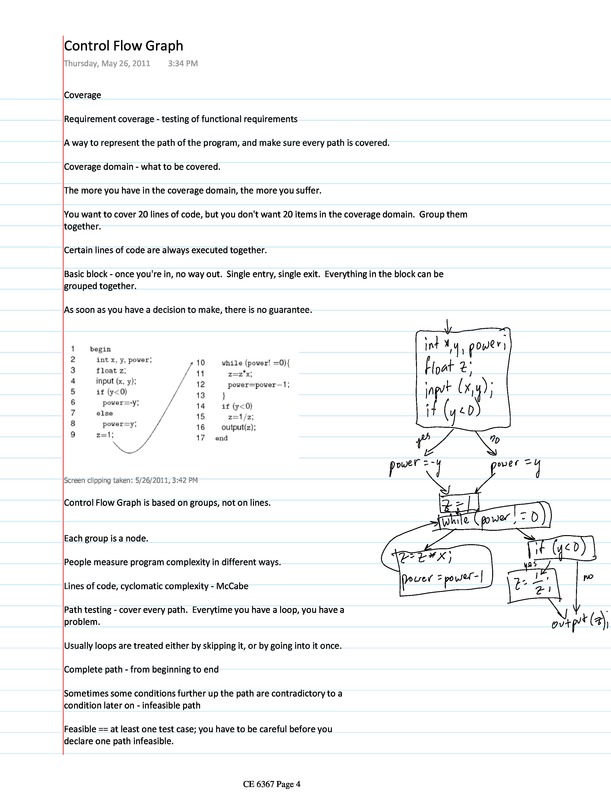 Control Flow Graph
Thursday, May 26, 2011 3:34 PM
Coverage
Requirement coverage - testing of functional requirements
A way to represent the path of the program, and make sure every path is covered.
Coverage domain - what to be covered.
The more you have in the coverage domain, the more you suffer.
You want to cover 20 lines of code, but you don't want 20 items in the coverage domain. Group them
together.
Certain lines of code are always executed together.
Basic block - once you're in, no way out. Single entry, single exit. Everything in the block can be
grouped together.
As soon as you have a decision to make, there is no guarantee.
1 begin
2 int x, y, power;
3 float z;
4 input (x, y);
5 if (y<0)
6 power=-y;
7 else
8 power=y;
9 z=1;
10 while (power! =0){
11 z=z*x;
12 power=power-1;
13 }
14 if (y<0)
15 z=1/z;
16 output(z);
17 end
int x, y, power;
float z;
input (x,y);
if (y<0)
yes
no
power=-y
power=y
z=1
while (power!=0)
z=z*x;
power=power-1
if (y<0)
yes
no
z=1/z;
output(z);
Screen clipping taken: 5/26/2011, 3:42 PM
Control Flow Graph is based on groups, not on lines.
Each group is a node.
People measure program complexity in different ways.
Lines of code, cyclomatic complexity - McCabe
Path testing - cover every path. Everytime you have a loop, you have a
problem.
Usually loops are treated either by skipping it, or by going into it once.
Complete path - from beginning to end
Sometimes some conditions further up the path are contradictory to a
condition later on - infeasible path
Feasible == at least one test case; you have to be careful before you
declare one path infeasible.
CE 6367 Page 4